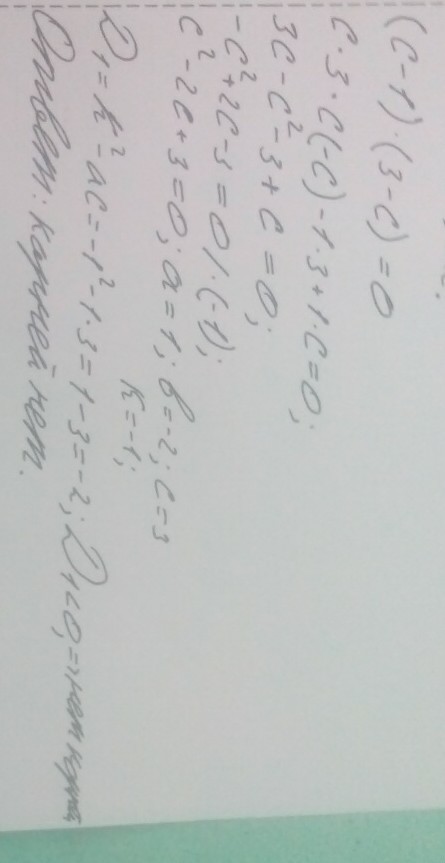 (c-1)·(3-c)=0
c·3·c(-c)-1·3+1·c=0;
3c-c²-3+c=0;
-c²+2c-3=0/·(-1);
c²-2c+3=0; a=1; b=-2; c=3
k=-1;
D₁=k²-ac=-1²-1·3=1-3=-2; D₁<0,=>нет корней
Ответ: корней нет.